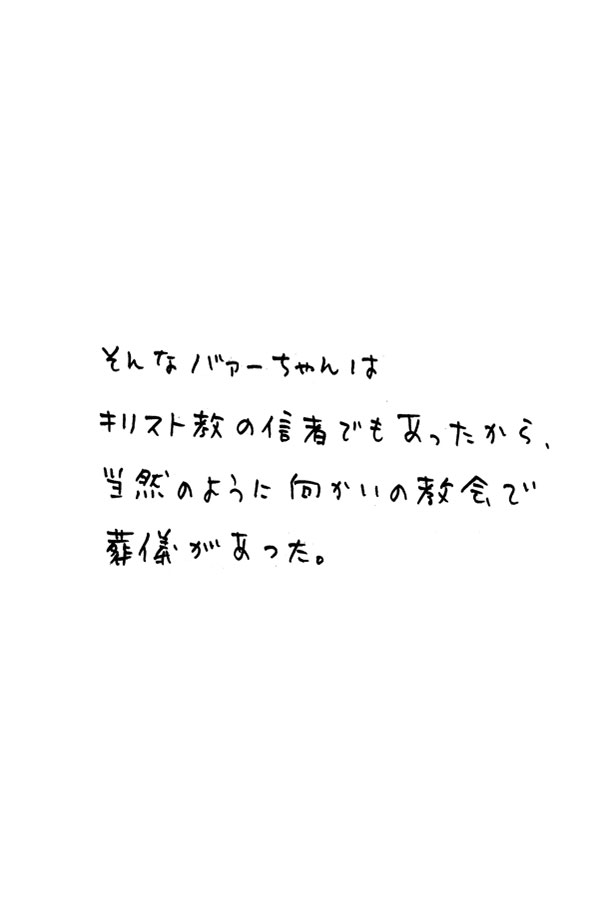 そんなバァーちゃんは
キリスト教の信者でもあったから、
当然のように向かいの教会で
葬儀があった。